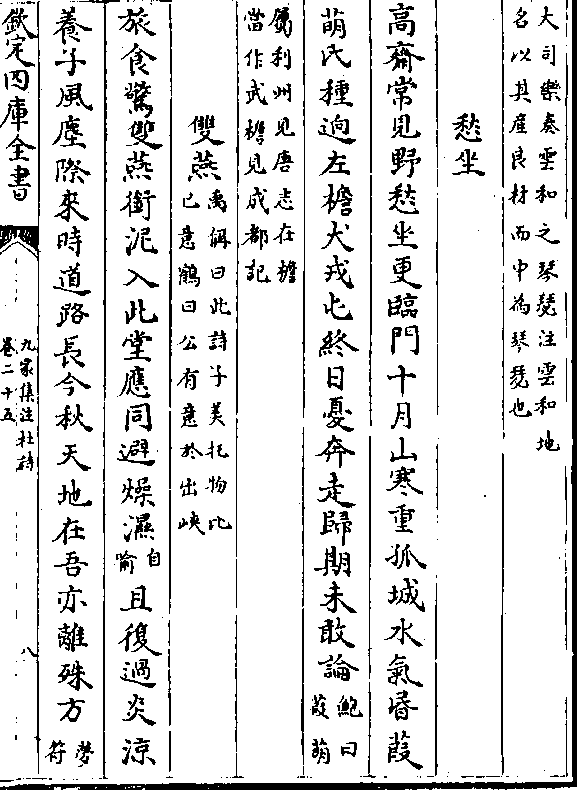 大司樂奏雲和之琴瑟注雲和地
名以其産良材而中為琴瑟也
愁坐
高齋常見野愁坐更臨門十月山寒重孤城水氣昏葭
萌氏種逈左檐犬戎屯終日憂奔走歸期未敢論
鮑曰
葭萌
屬利州見唐志左檐
當作武檐見成都記
雙燕
禹偁曰此詩子美托物比
已意鶴曰公有意於出峽
旅食驚雙燕銜泥入此堂應同避燥濕
自
喻
且復過炎涼
養子風塵際來時道路長今秋天地在吾亦離殊方
夢
符
欽定四庫全書
九家集注杜詩
卷二十五
八